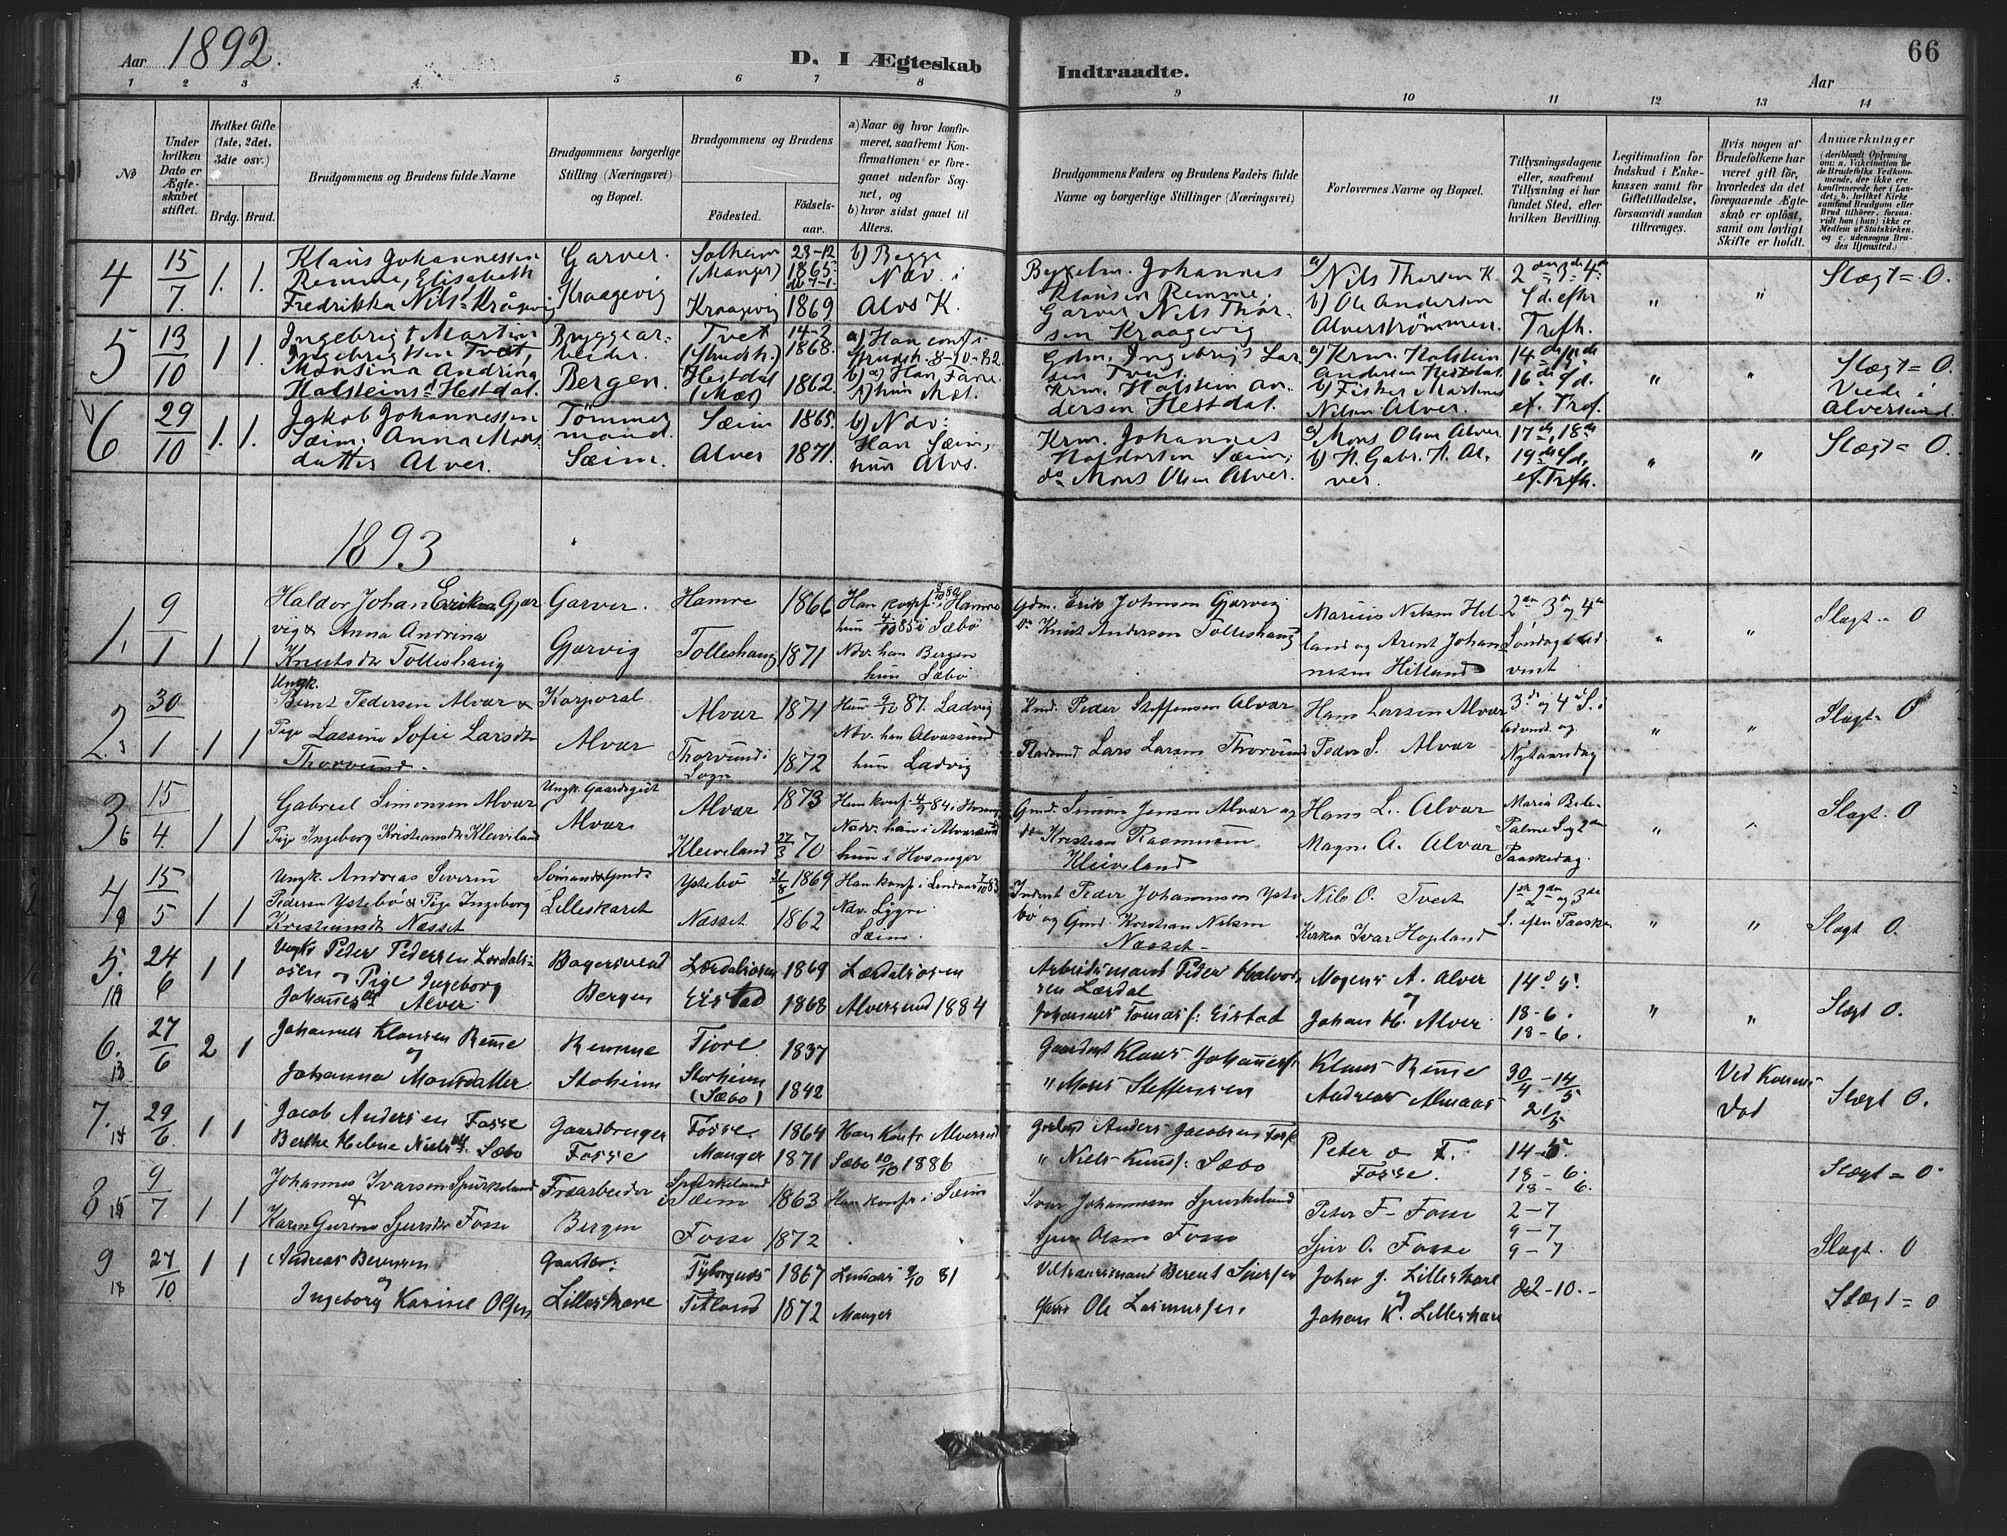 Aar 1892.
D. I Ægteskab
Indtraadte.
Aar
66
1 2 3 4 5 6 7 8
9 10 11 12 13 14
No
Under hvilken Dato er Ægteskabet stiftet.
Hvilket Gifte (1ste, 2det, 3die osv.)
Brdg. Brud.
Brudgommens og Brudens fulde Navne
Brudgommens borgerlige Stilling (Næringsvei) og Bopæl.
Brudgommens og Brudens
Födested.
Födsels-aar.
a) Naar og hvor konfirmeret, saafremt Konfirmationen er foregaaet udenfor Sognet, og
b) hvor sidst gaaet til Alters.
Brudgommens Faders og Brudens Faders fulde Navne og borgerlige Stillinger (Næringsvei)
Forlovernes Navne og Bopæl.
Tillysningsdagene eller, saafremt Tillysning ei har fundet Sted, efter hvilken Bevilling.
Legitimation for Indskud i Enkekassen samt for Giftetilladelse, forsaavidt saadan tiltrænges.
Hvis nogen af Brudefolkene har været gift för, hvorledes da det foregaaende Ægteskab er oplöst, samt om lovligt Skifte er holdt.
Anmærkninger
(deriblandt Oplysning om: a. Vakcination for de Brudefolks Vedkommende, der ikke ere konfirmerede her i Landet; b. hvilket Kirkesamfund Brudgom eller Brud tilhörer, forsaavidt han (hun) ikke er Medlem af Statskirken, og c. udensogns Brudes Hjemsted.)
4 15/7 1. 1.
Klaus Johannessen
Remme, Elisabeth
Fredrikka Nilsd. Krågevig
Garver.
Kraagevig
Solheim
(Manger)
Kraagevig
23-12
1865
1869
b) Begge
Ndv. i
Alvs K.
Johannes
Klausen Remme,
Garver Nils Thorsen
Kraagevig
a) Nils Thorsen K.
b) Ole Andersen
Alverströmmen.
2den 3die 4de
S. d. efter
Trefh.
" "
Slægt = O.
5 13/10 1 1
Ingebrigt Martin
Ingebrigtsen Tvet,
Monsina Andrina
Holsteinsd. Hestdal.
Byggearbeider.
Bergen.
Tvet
Hestdal
(Mæl)
14-2
1868.
1862
a) Han conf. i
b) a) Han Fane
b) hun Mæl.
Gdm. Ingebrigt Larsen Tvet.
Krm. Holstein Andersen Hestdal.
a) Krm. Holstein
Andersen Hestdal
b) Fisker Martines
Nilsen Alver.
14de
16de S. d.
ef. Tref.
" "
Slægt = O.
Viede i
Alversund.
6 29/10 1. 1.
Jakob Johannessen
Sæim. Anna Monsdatter Alver.
Tömmermand.
Sæim.
Sæim
Alver
1865.
1871.
b) Ndv:
Han Sæim,
hun Alvs.
Krm. Johannes
Haldorsen Sæim,
do Mons Olsen Alver.
a) Mons Olsen Alver.
b) H. Gabr. H. Alver.
17de, 18de
19de S. d.
ef. Trefh.
" "
Slægt = O.
1893
1. 9/1 1 1
Haldor Johan Eriksen Gjærvig & Anna Andrina
Knutsdr Tolleshaug
Garver.
Gjærvig
Hamre
Tolleshaug
1866
1871
Han konf. i Hamre
hun 4/10 85 i Sæbø
Ndv. han Bergen
hun Sæbø
Gdm. Erik Johnsen Gjærvig
Do Knut Andersen Tolleshaug
Marius Nilsen Hilland og Arent Johannesen Hilland
2den 3die og 4de
Söndag i Advent
" "
Slægt = O
2. 3 30/1 1 1
Ungk.
Bernt Pedersen Alvær &
Pige Lassine Sofie Larsdr
Thorvund.
Korporal
Alvær
Alvær
Thorvund i
Sogn
1871
1872
Hun 9/10 87. Ladvig
Ndv. han Alversund
hun Ladvig
Gmd. Peder Steffensen Alvær
Pladsmd Lars Larsen Thorvund
Hans Larsen Alvær
Peder S. Alvær
3die og 4de S. i
Advent og
Nytaarsdag
" "
Slægt = O
3 6 15/4. 1 1
Gabriel Simonsen Alvær
Pige Ingeborg Kristiansdr Kleiveland
Ungk. Gaardsgut
Alvær
Alvær
Kleiveland
1873
27/3 70
Ndv. han i Alversund
hun i Hosanger
Gmd. Simon Jensen Alvær og
do Kristian Rasmussen
Kleiveland
Hans L. Alvær
Magne A. Alvær
Maria Beb.
Palme S. og 2den
Paaskedag.
" "
Slægt. O
4 8 15/5 1 1
Ungk. Andreas Severin
Pedersen Ystebø & Pige Ingeborg
Kristiansdr Næsset
Lilleskaret
Ystebø
Næsset
1869
1862
Han konf. i Lindaas
Ndv. Lygre
Sæim
Inderst Peder Johannesen Ystebø og Gmd. Kristian Nilsen
Næsset
Nils O. Tveit
Kirkes. Ivar Hopland
1ste 2den og 3die
S. efter Paaske
" "
Slægt O.
5. 24/6 1 1
Ungk. Peder Pedersen Lærdalsøren og Pige Ingeborg
Johannesdt Alver
Bagersvend
Bergen
Lærdalsøren
Eistad
1869
1868
Lærdalsøren
Alversund 1884
Arbeidsmand Peder Halvorsen Lærdal
Johannes Tomass: Eistad
Mogens A. Alver
og
Johan H. Alver
14-5.
18-6.
18-6.
" "
Slægt O.
6. 13 27/6 2 1
Johannes Klausen Reme
og
Johanna Monsdatter
Remme
Storheim
Fiore
Storheim
(Sæbø)
1837
1842
Gaardmd Klaus Johannesen
" Mons Steffensen
Klaus Reme
Andreas Almaas
30/4 - 14/5
21/5
Ved Konens
Død
Slægt O.
7. 14 29/6 1 1
Jacob Andersen Fosse
Berthe Helene Nielsdt. Sæbø
Gaardbruger
Fosse
Fosse
Manger
1864
1871
Han Konfr Alversund
Sæbø 10/10 1886
Anders Jacobsen Fosse
" Niels Knuds: Sæbø
Peter o F.
Fosse.
14-5
18-6
18-6.
Slægt = O
8 15 9/7 1 1
Johannes Ivarsen Spurkeland
&
Karen Gurine Sjursdr Fosse
Bergen
Spurkeland
i Sæim
Fosse
1863
1872
Han konfr i Sæim
Ivar Johannesen Spurkeland
Sjur Olsen Fosse
Peter F- Fosse
Sjur O. Fosse
2-7
9-7
9-7
Slægt. O
9 18 27/10 1 1
Andreas Berentsen
og
Ingeborg Karine Olsen
Gaardbr:
Lilleskare
Titland
1867
1872
Lindaas 9/10 81
Manger
Berent Sjursen
Ole Rasmussen
Johan J. Lilleskare
og
Johan K. Lilleskare
22-10.
Slægt = O